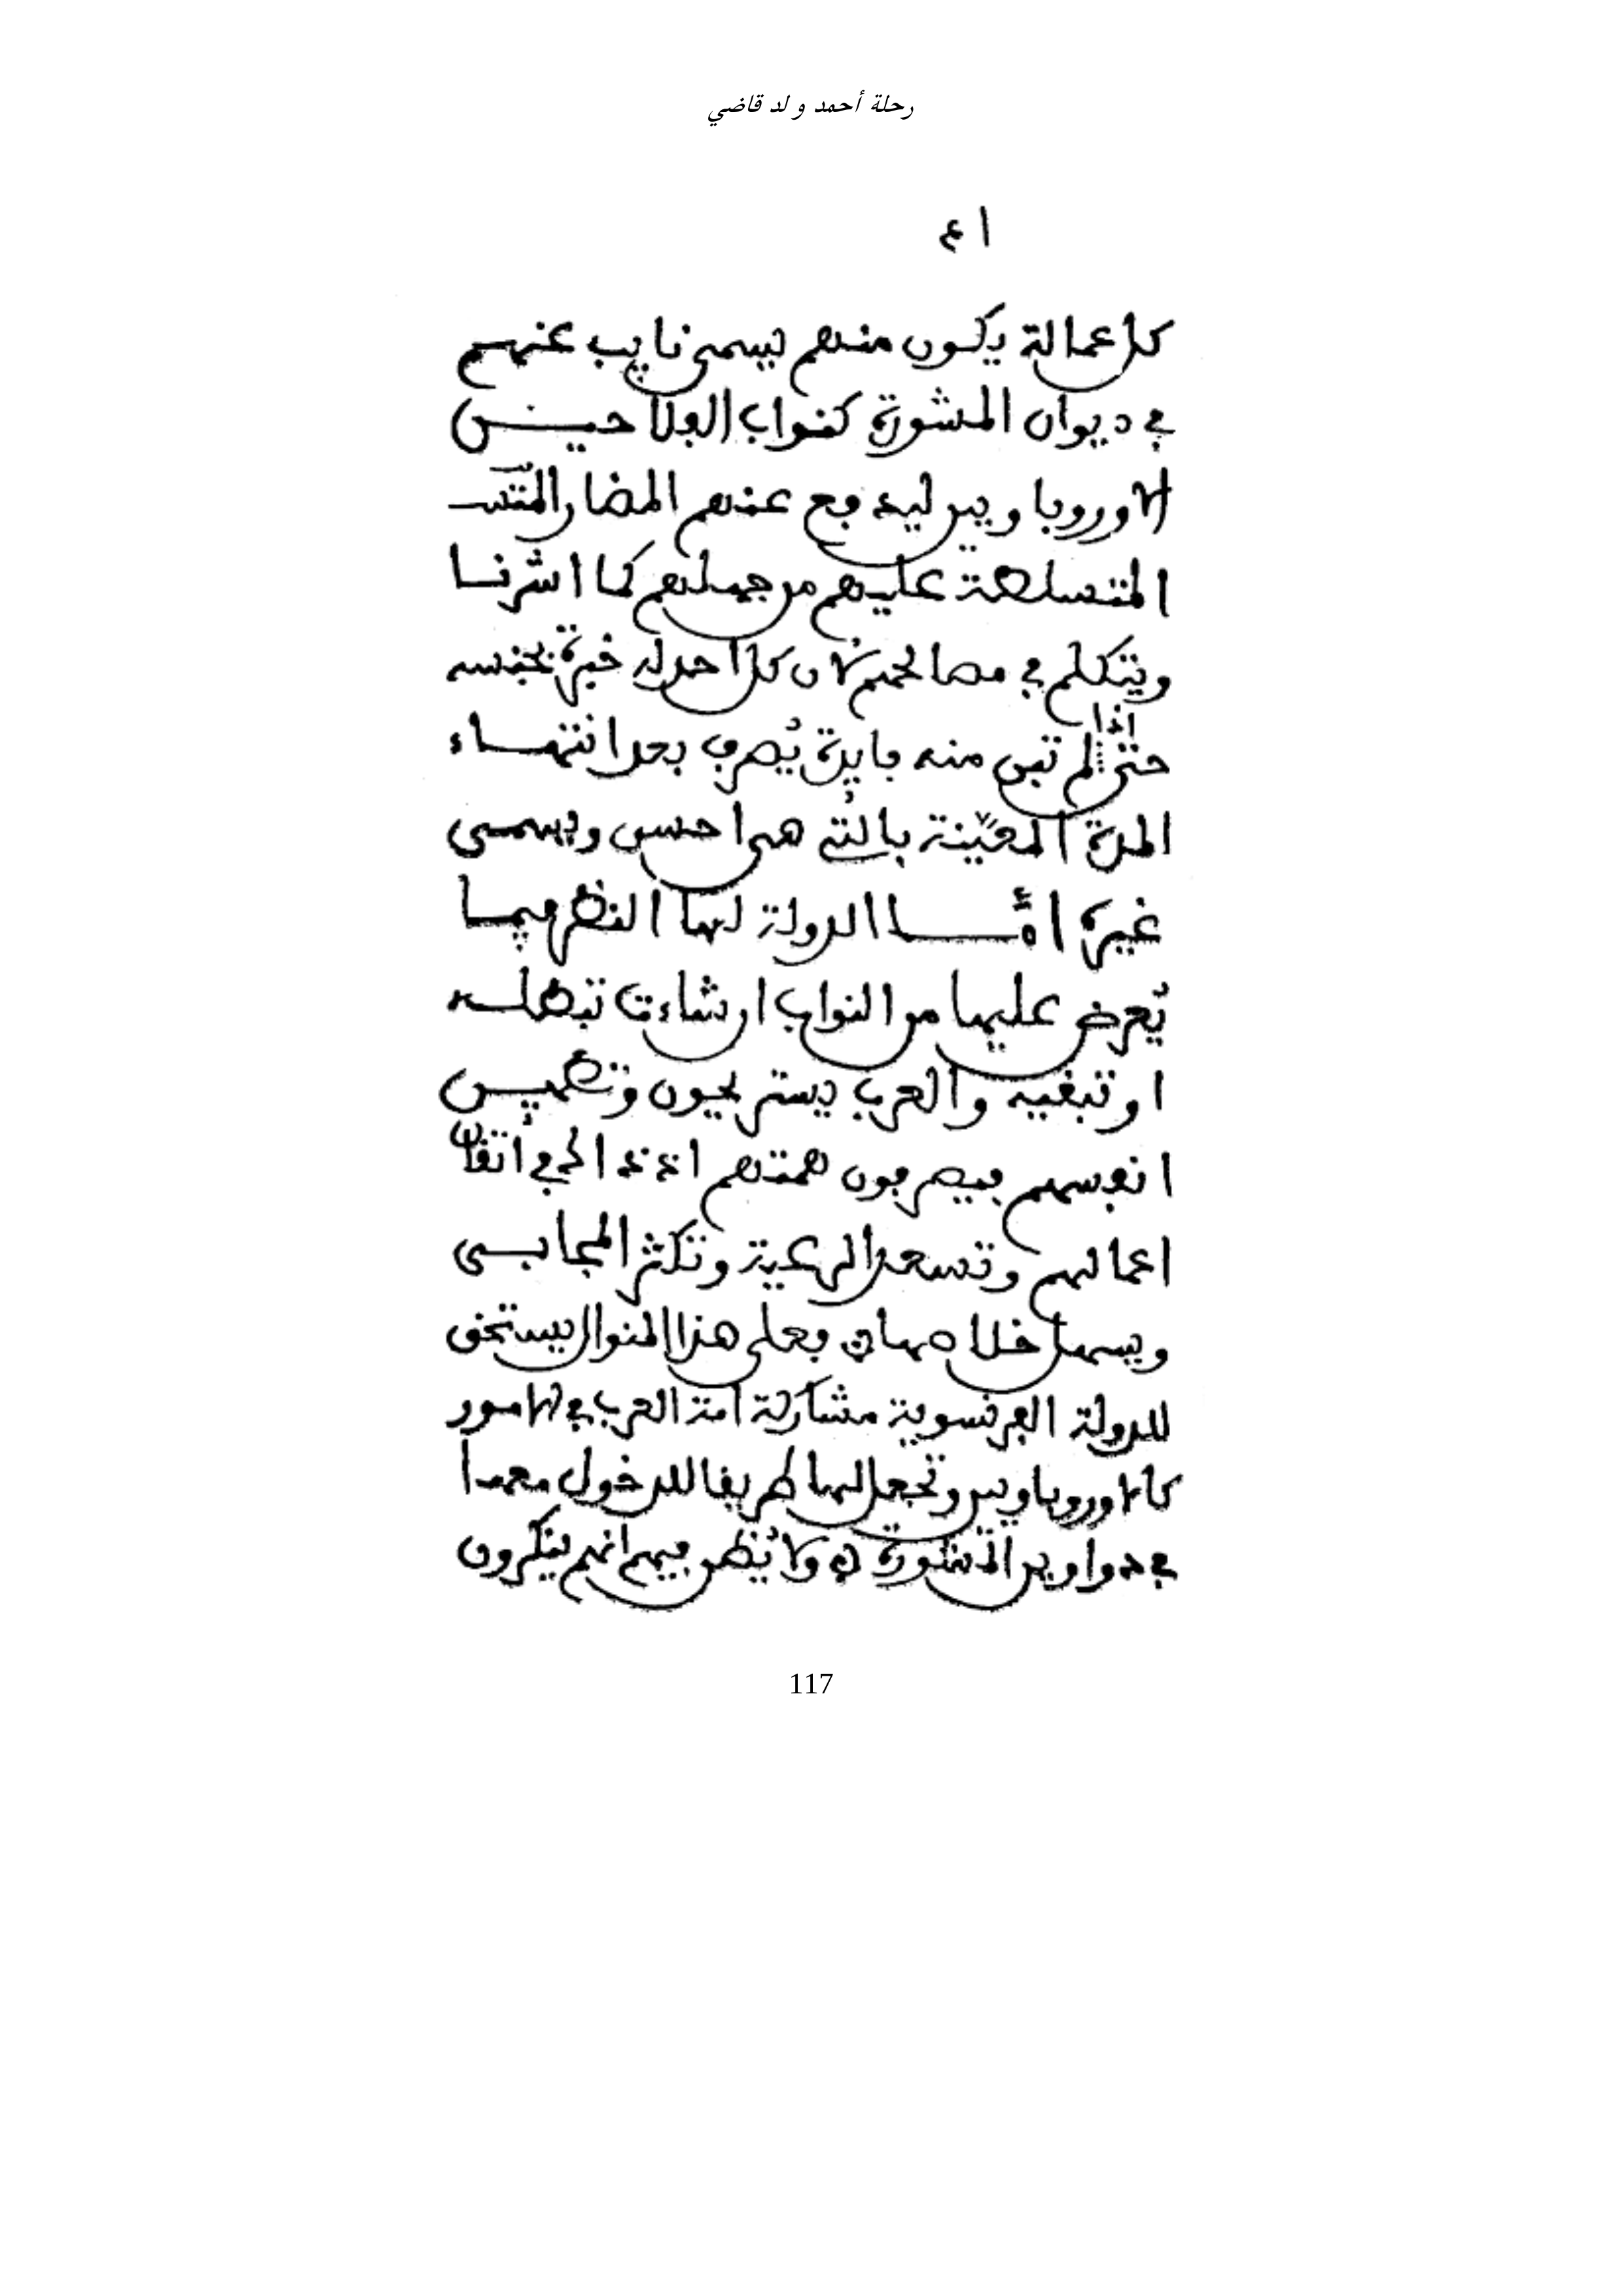 رحلة أحمد و لد قاضي
كل عمالة يكون منهم يسمى نايب عنهم
في ديوان المشورة كنواب الفلاحين
الاوروباويين ليدفع عنهم المضار
المتسلطة عليهم من جهلهم كما اشرنا
ويتكلم في مصالحهم لان كل احد له خبرة بجنسه
حتى اذا لم تبن منه فايدة يُصرف بعد انتهاء
المدة المعيّنة بالتي هي احسن ويسمى
غيره امّا الدولة لها النظر فيما
يُعرض عليها من النواب ان شاءت تبطله
او تبقيه والعرب يستريحون وتطمين
انفسهم فيصرفون همتهم اذ ذاك في اتقان
اعمالهم وتسعد الرعية وتكثر المجابى
ويسهل خلاصها فعلى هذا المنوال يستحق
للدولة الفرنسوية مشاركة امة العرب في الامور
كالاوروباويين وتجعل لها طريقا للدخول معهدا
في دواوين المشورة ولا يُنظر فيهم انهم ينكرون
117